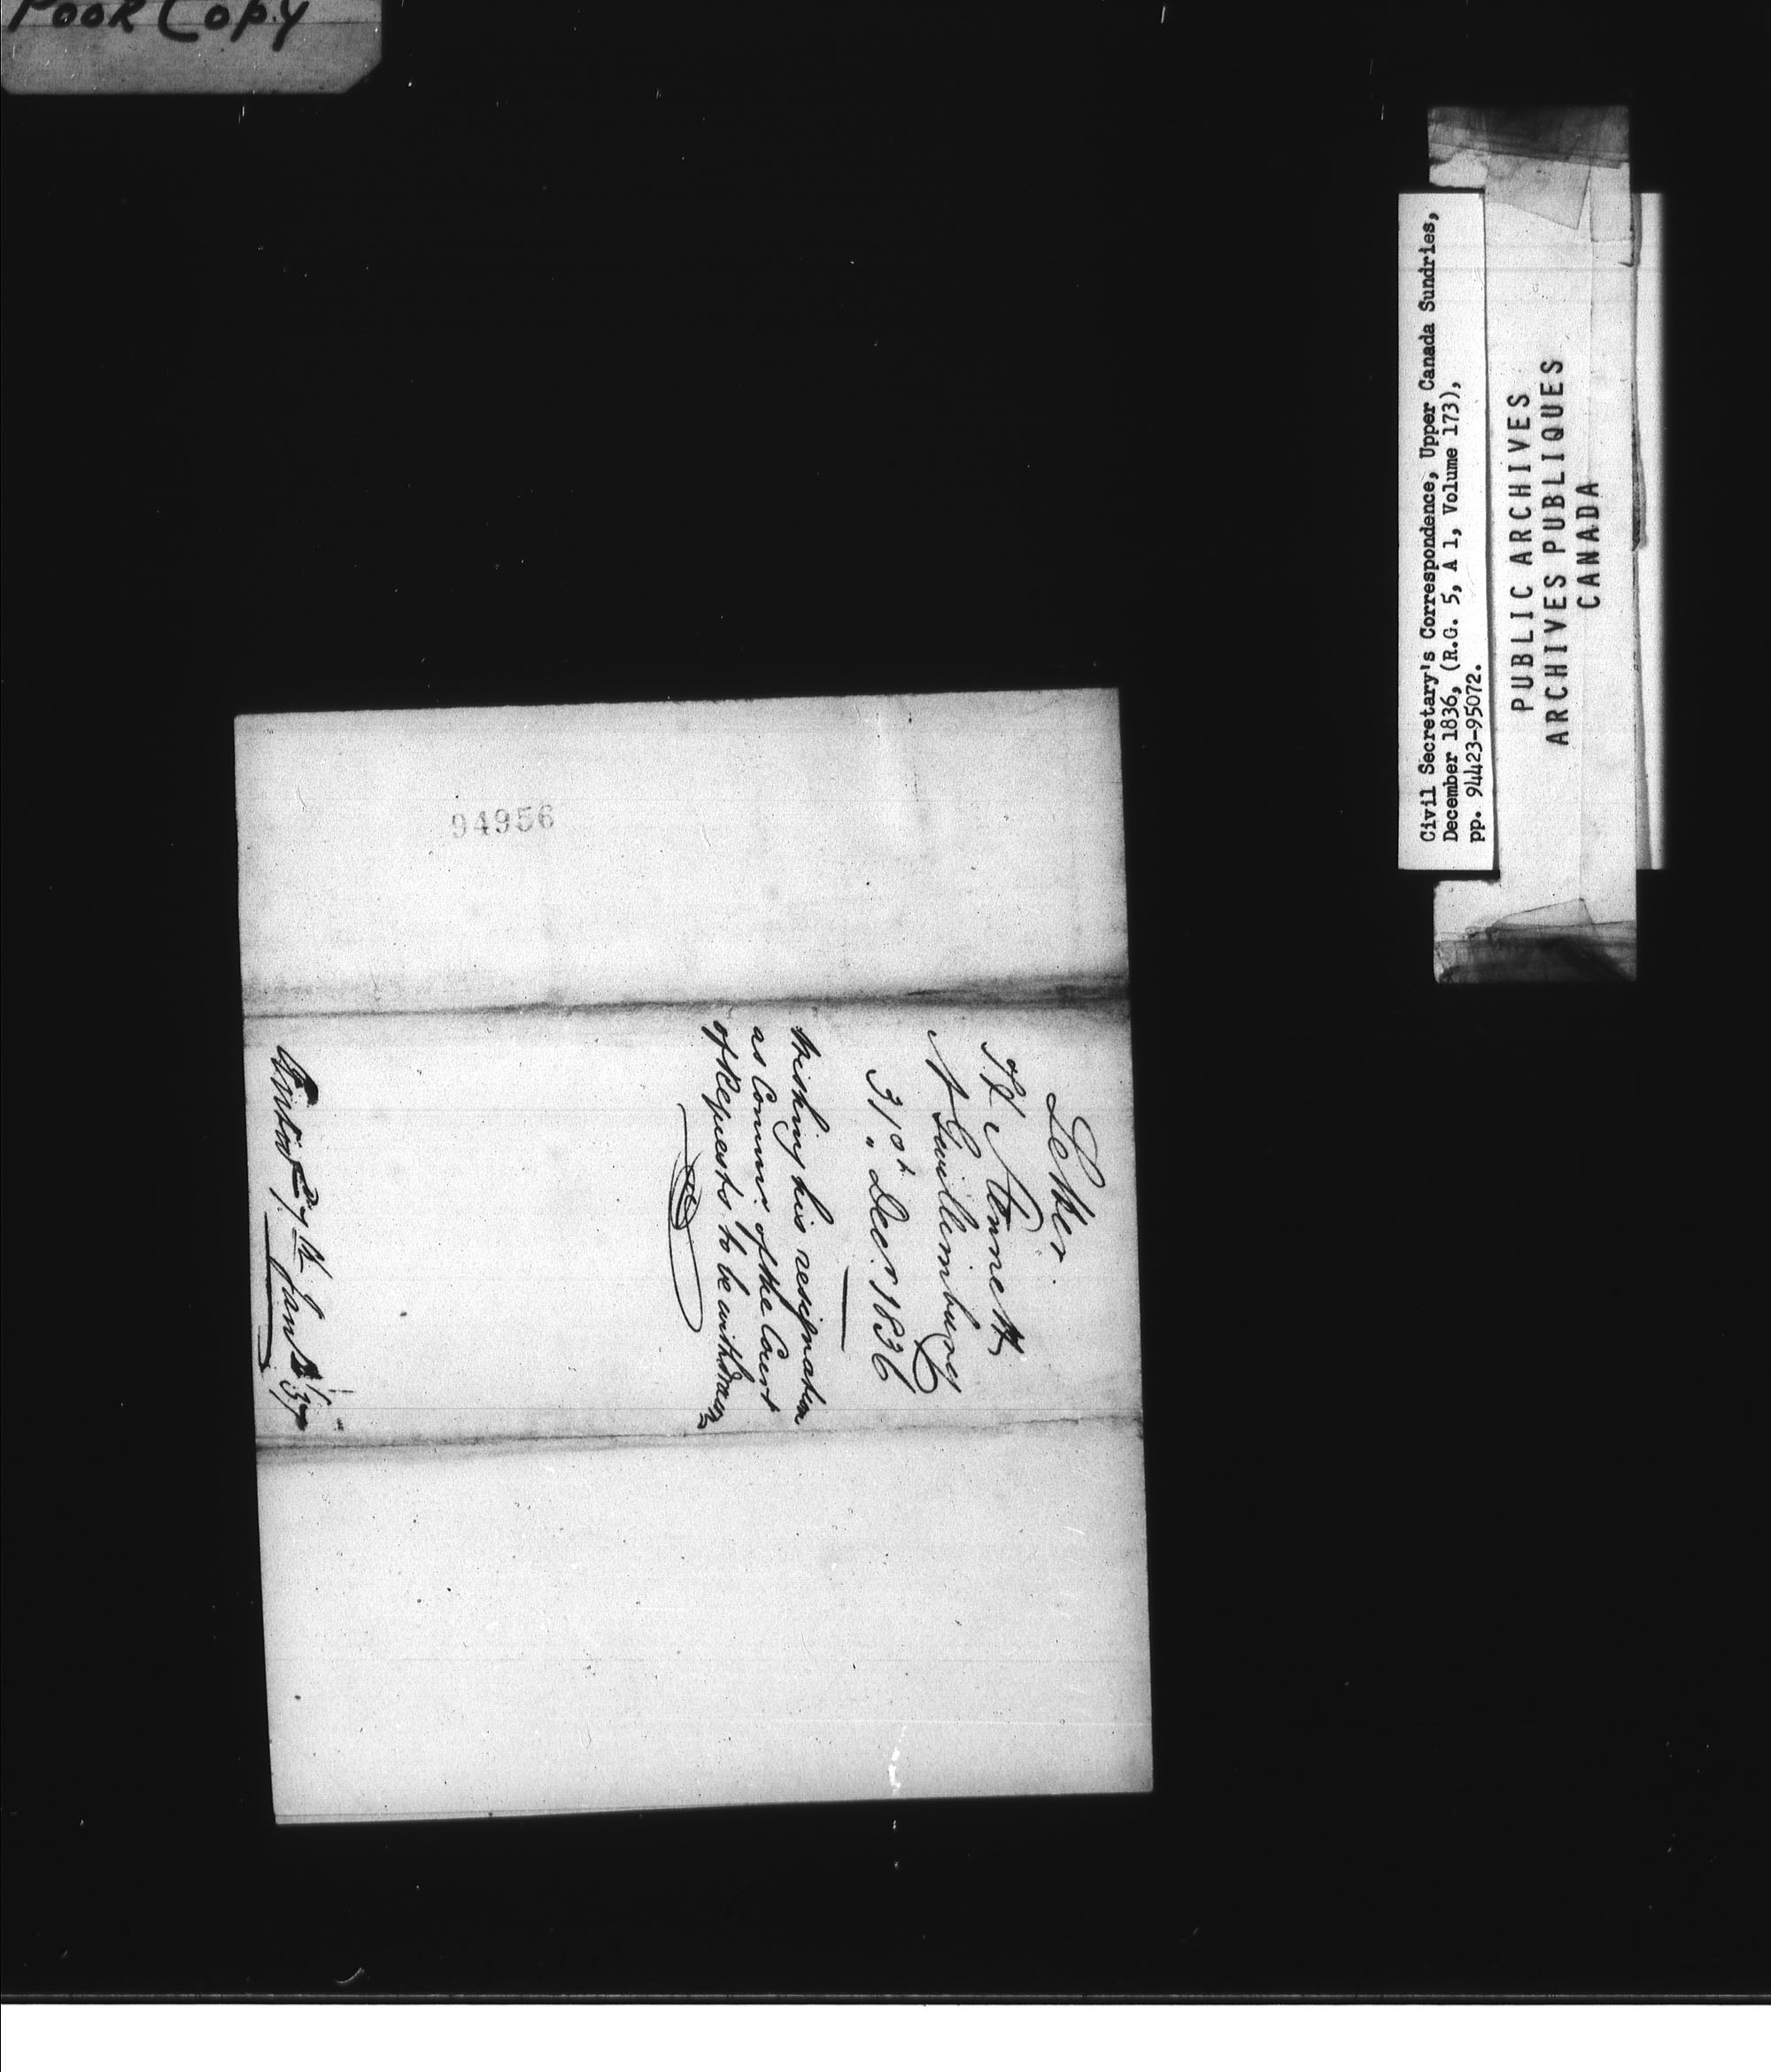 Poor Copy
Civil Secretary's Correspondence, Upper Canada Sundries,
December 1836, (R.G. 5, A 1, Volume 173),
pp. 94423-95072.
PUBLIC ARCHIVES
ARCHIVES PUBLIQUES
CANADA
94956
Letter
N Gwillimbury
31st Decr 1836
Wishing his resignation
as Commr. of the Court
of Requests to be withdrawn
Entd 7th Jany /37